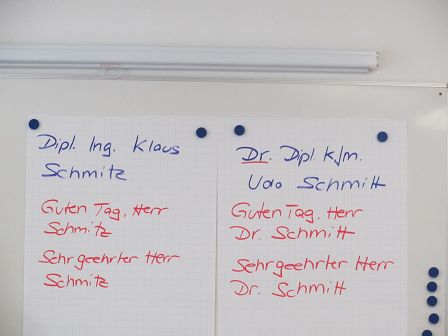 Dipl. Ing. Klaus
Schmitz
Guten Tag, Herr
Schmitz
Sehr geehrter Herr
Schmitz
Dr. Dipl. Kfm.
Udo Schmitt
Guten Tag, Herr
Dr. Schmitt
Sehr geehrter Herr
Dr. Schmitt